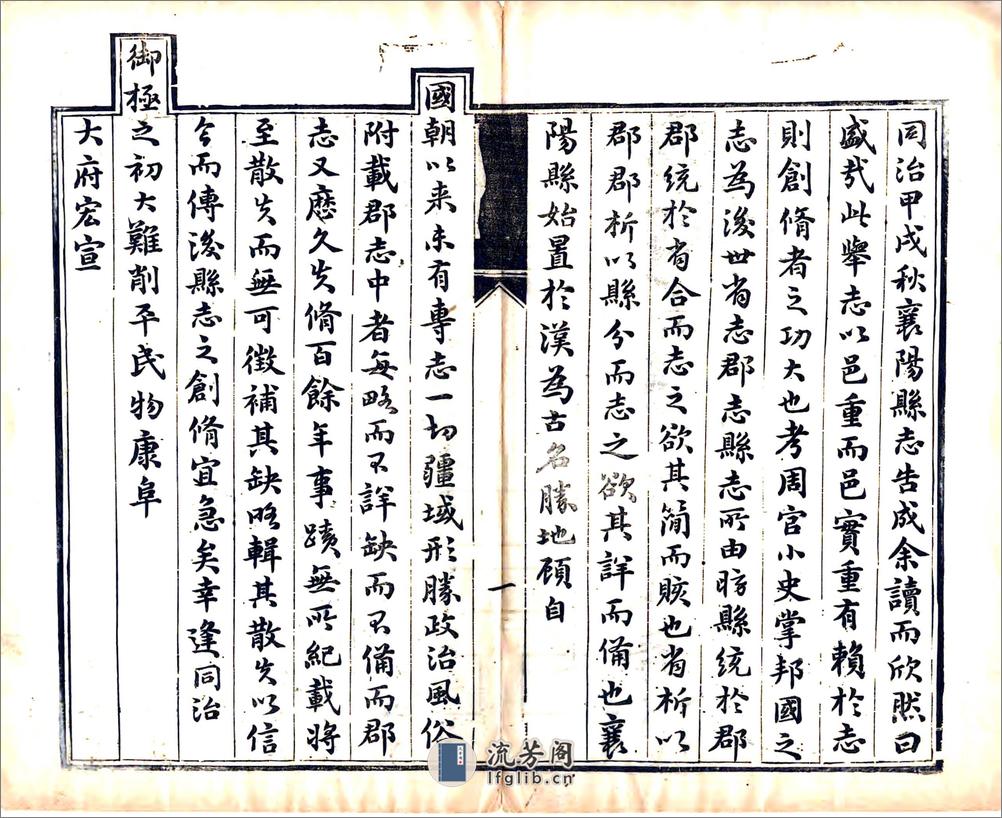 同治甲戌秋襄陽縣志告成余讀而欣然曰
盛哉此舉志以邑重而邑實重有賴於志
則創脩者之功大也考周官小史掌邦國之
志為後世省志郡志縣志所由昉縣統於郡
郡統於省合而志之欲其簡而賅也省析以
郡郡析以縣分而志之欲其詳而備也襄
陽縣始置於漢為古名勝地顧自
一
國朝以来未有專志一切疆域形勝政治風俗
附載郡志中者每略而不詳缺而不備而郡
志又歷久失脩百餘年事蹟無所紀載將
至散失而無可徵補其缺略輯其散失以信
今而傳後縣志之創脩宜急矣幸逢同治
御極之初大難削平民物康阜
大府宏宣
流芳阁
lfglib.cn